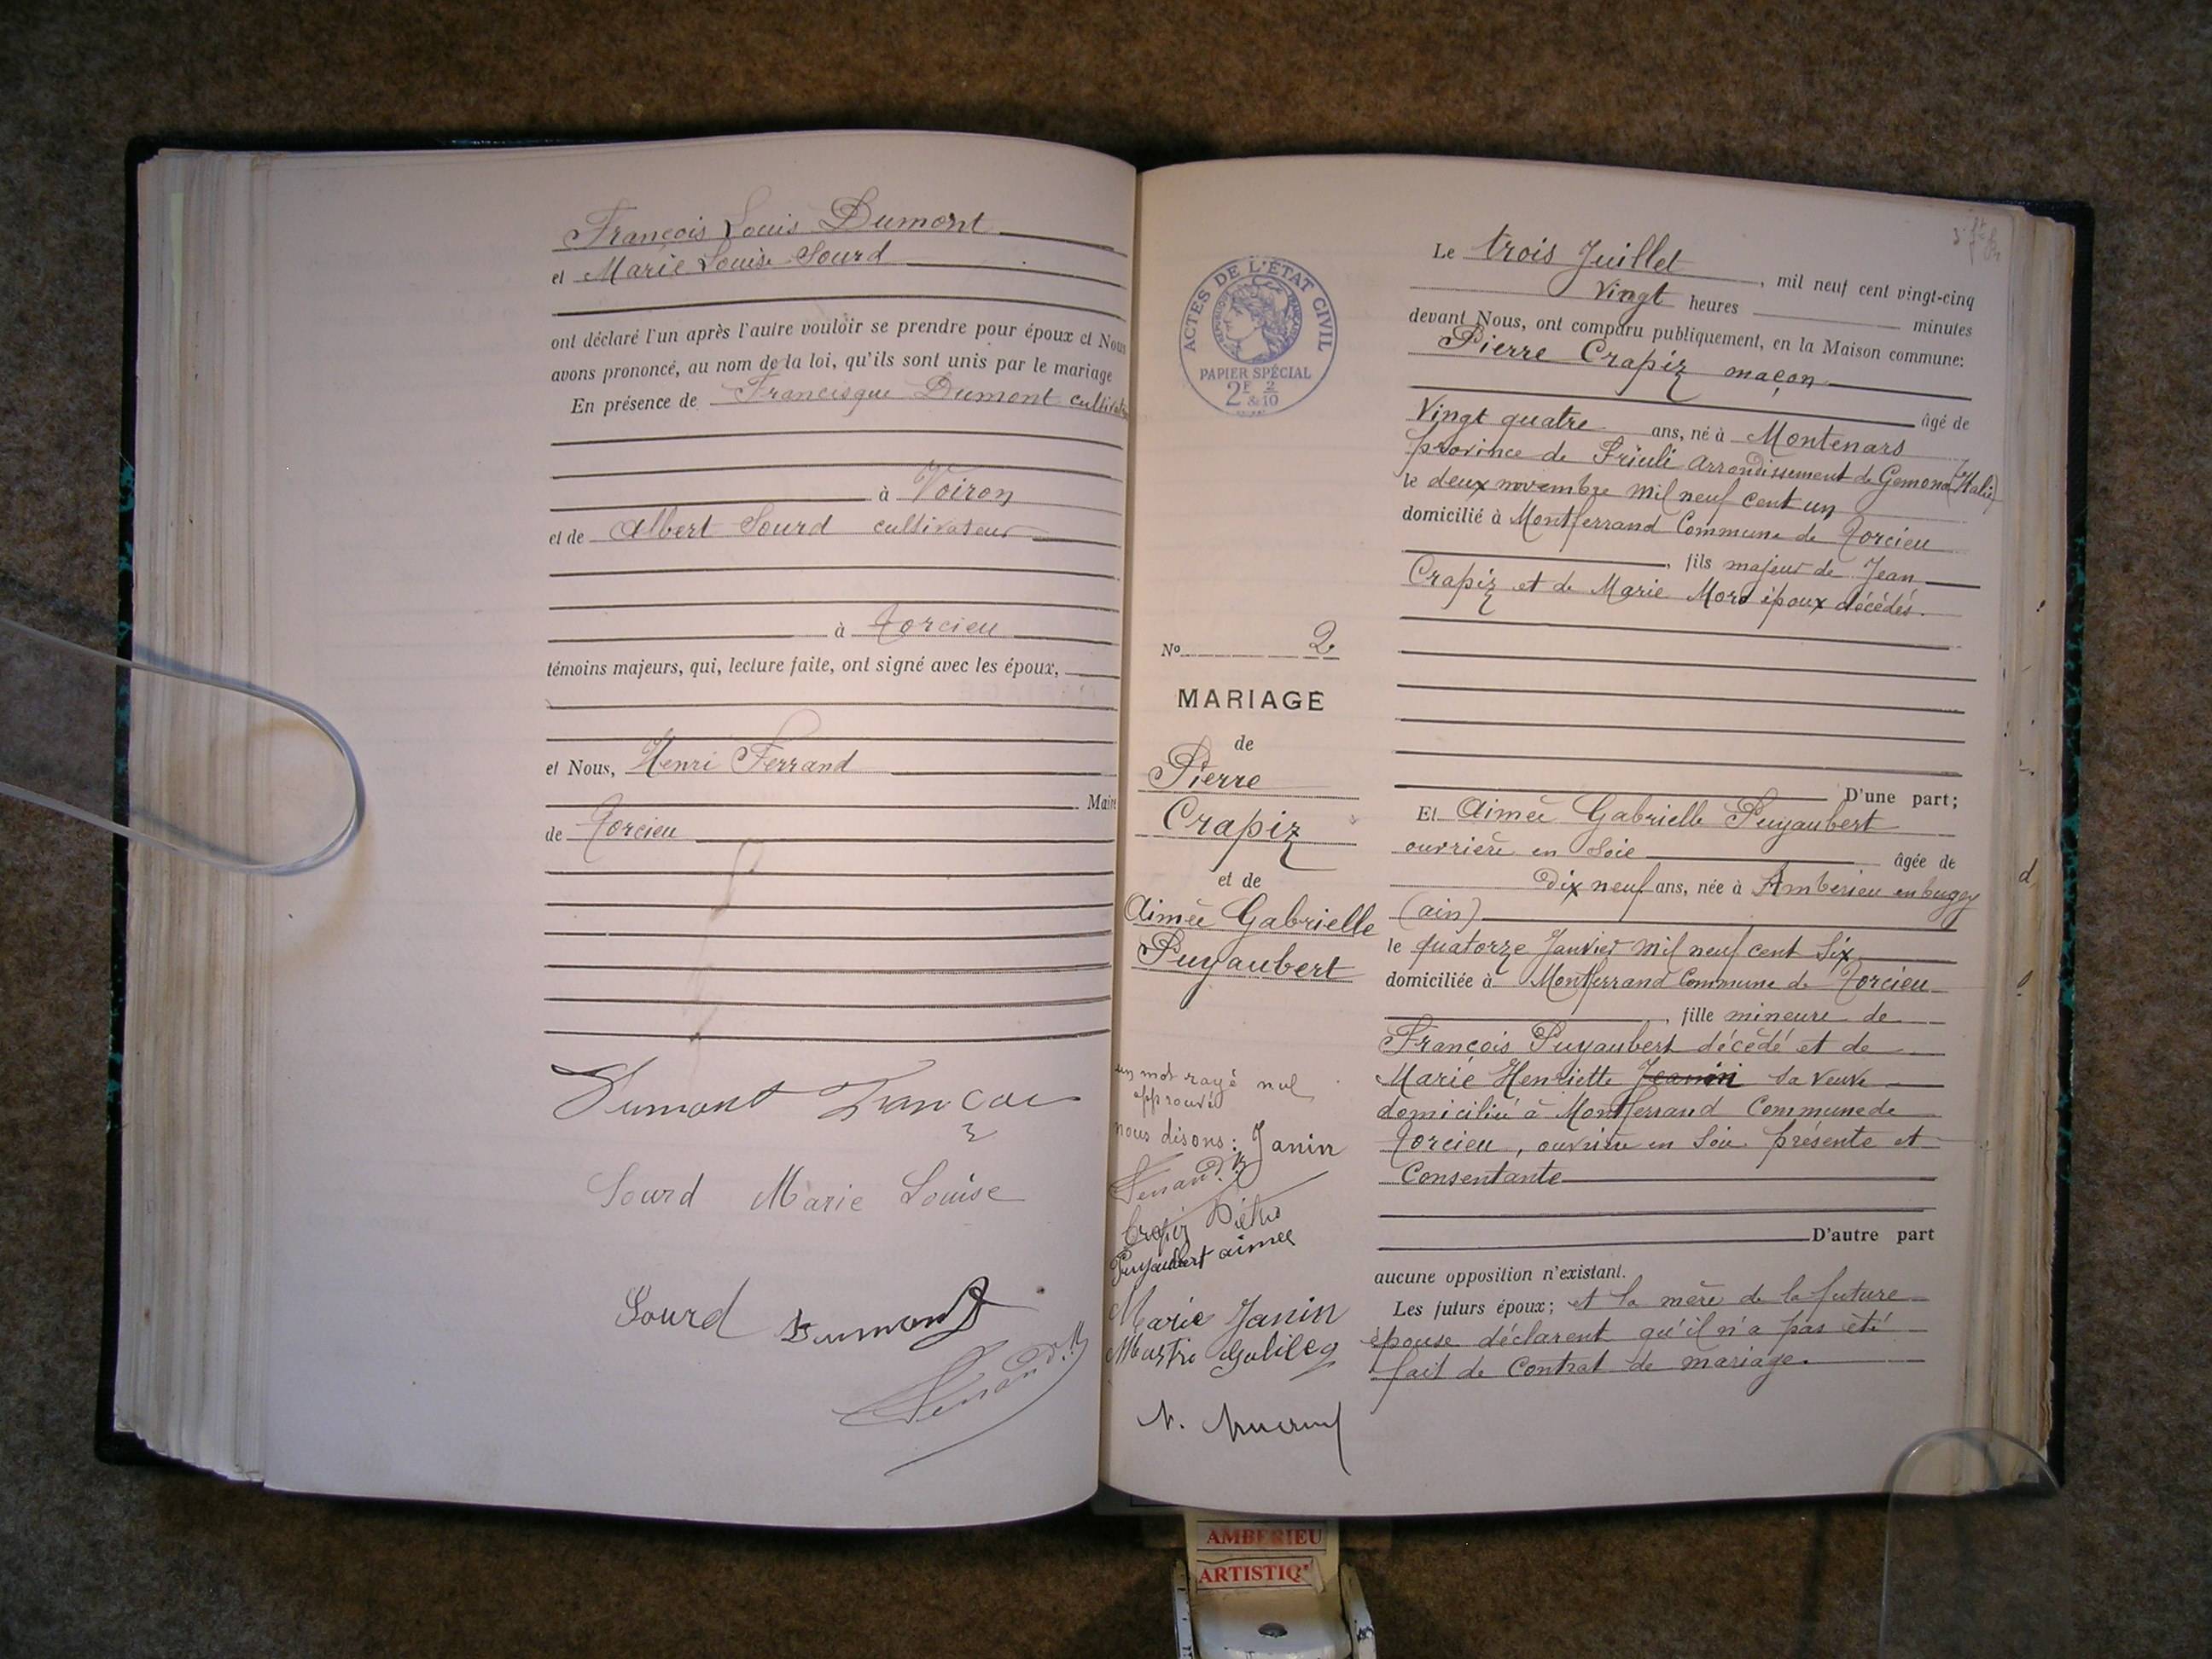 François Louis Dumont
et Marie Louise Sourd
ont déclaré l'un après l'autre vouloir se prendre pour époux et Nous
avons prononcé, au nom de la loi, qu'ils sont unis par le mariage
En présence de Francisque Dumont cultivateur
à Voiron
et de Albert Sourd cultivateur
à Torcieu
témoins majeurs, qui, lecture faite, ont signé avec les époux,
et Nous, Henri Ferrand
Maire
de Torcieu
Dumont Francois
Sourd Marie Louise
Sourd Dumont
Ferrand H
ACTES DE L'ÉTAT CIVIL
PAPIER SPÉCIAL
2F 2
& 10
No 2
MARIAGE
de
Pierre
Crapiz
et de
Aimée Gabrielle
Puyaubert
un mot rayé nul
approuvé
nous disons: Janin
Ferrand H
Crapiz Pietro
Puyaubert aimee
Marie Janin
Le trois Juillet, mil neuf cent vingt-cinq
Vingt heures minutes
devant Nous, ont comparu publiquement, en la Maison commune:
Pierre Crapiz maçon
âgé de
Vingt quatre ans, né à Montenars
province de Friuli arrondissement de Gemona (Italie)
le deux novembre mil neuf cent un
domicilié à Montferrand Commune de Torcieu
, fils majeur de Jean
Crapiz et de Marie Moro époux décédés.
D'une part;
Et Aimée Gabrielle Puyaubert
ouvrière en Soie âgée de
Dix neuf ans, née à Ambérieu en bugey
(ain)
le quatorze Janvier mil neuf cent Six
domiciliée à Montferrand Commune de Torcieu
, fille mineure de
François Puyaubert décédé et de
Marie Henriette Jeanin sa veuve
domiciliée à Montferrand Commune de
Torcieu, ouvrière en Soie présente et
Consentante
D'autre part
aucune opposition n'existant.
Les futurs époux; et la mère de la future
épouse déclarent qu'il n'a pas été
fait de Contrat de mariage.
AMBERIEU
ARTISTIQ